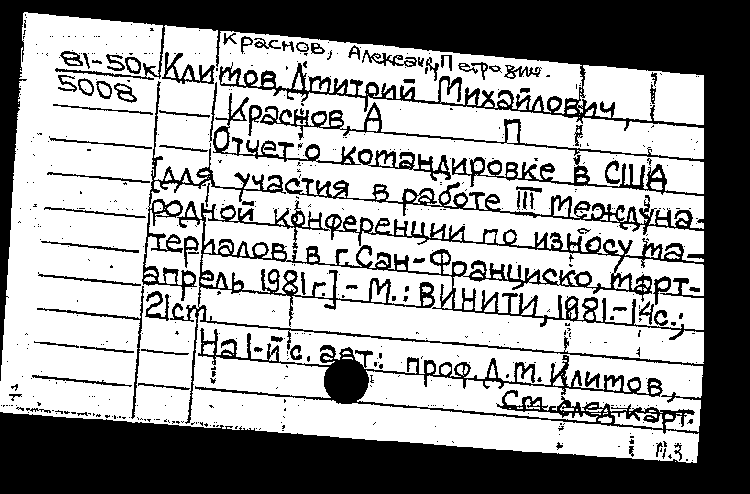 Краснов, Александр Петрович.
81-50к
5008
Климов, Дмитрий Михайлович,
Краснов, А П
Отчет о командировке в США
[для участия в работе III Междуна-
родной конференции по износу ма-
териалов в г. Сан-Франциско, март-
апрель 1981 г.] - М.: ВИНИТИ, 1981.-14с.;
21см.
На 1-й с. авт.: проф. Д.М. Климов,
См. след. карт.
1
М.З.